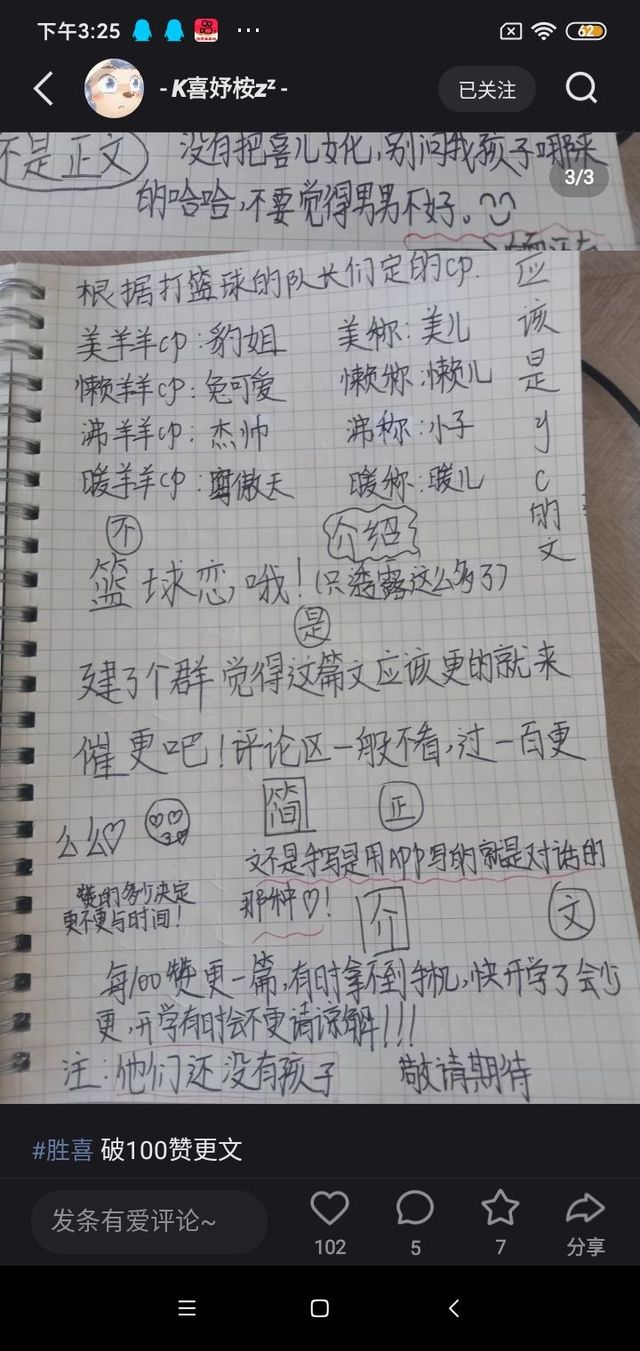 下午3:25
62
-K喜妤桉zᶻ-
已关注
不是正文
没有把喜儿女化,别问我孩子哪来
的哈哈,不要觉得男男不好。
3/3
根据打篮球的队长们定的cp.
美羊羊cp:豹姐 美称:美儿
懒羊羊cp:兔可爱 懒称:懒儿
沸羊羊cp:杰帅 沸称:小子
暖羊羊cp:傲天 暖称:暖儿
应该是yc的文
不
介绍
篮球恋哦!(只透露这么多了)
是
建了个群觉得这篇文应该更的就来
催更吧!评论区一般不看,过一百更
么么♡
简
正
文不是手写是用APP写的就是对话的
那种♡!
赞的多少决定
更不更与时间!
介
文
每100赞更一篇,有时拿不到手机,快开学了会少
更,开学有时会不更请谅解!!!
注:他们还没有孩子 敬请期待
#胜喜 破100赞更文
发条有爱评论~
102
5
7
分享